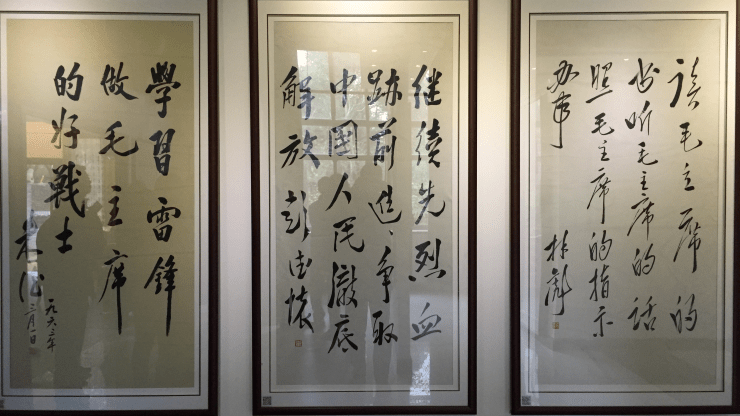 學習雷鋒
做毛主席
的好戰士
朱德
一九六三年
三月一日
继續先烈血
跡前進、争取
中國人民徹底
解放 彭德懷
读毛主席的
书听毛主席的话
照毛主席的指示
办事
林彪